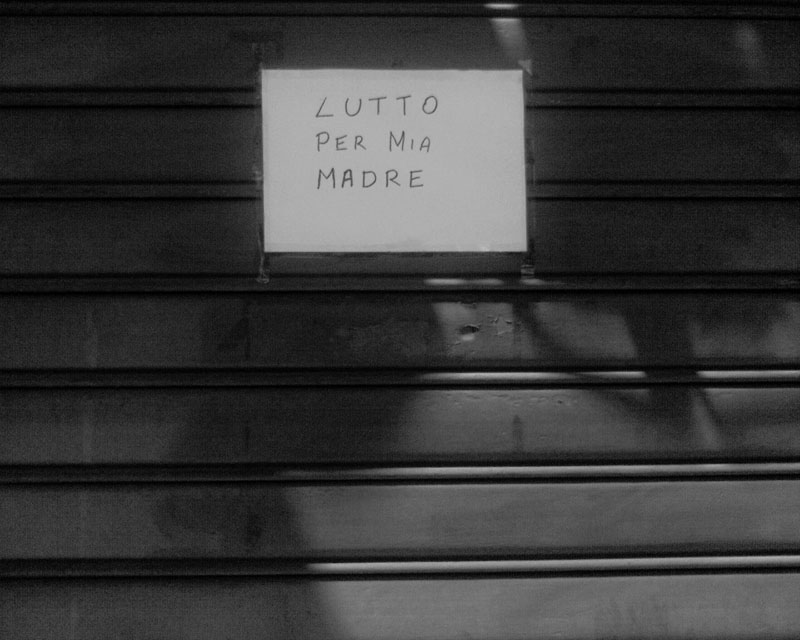 LUTTO
PER MIA
MADRE